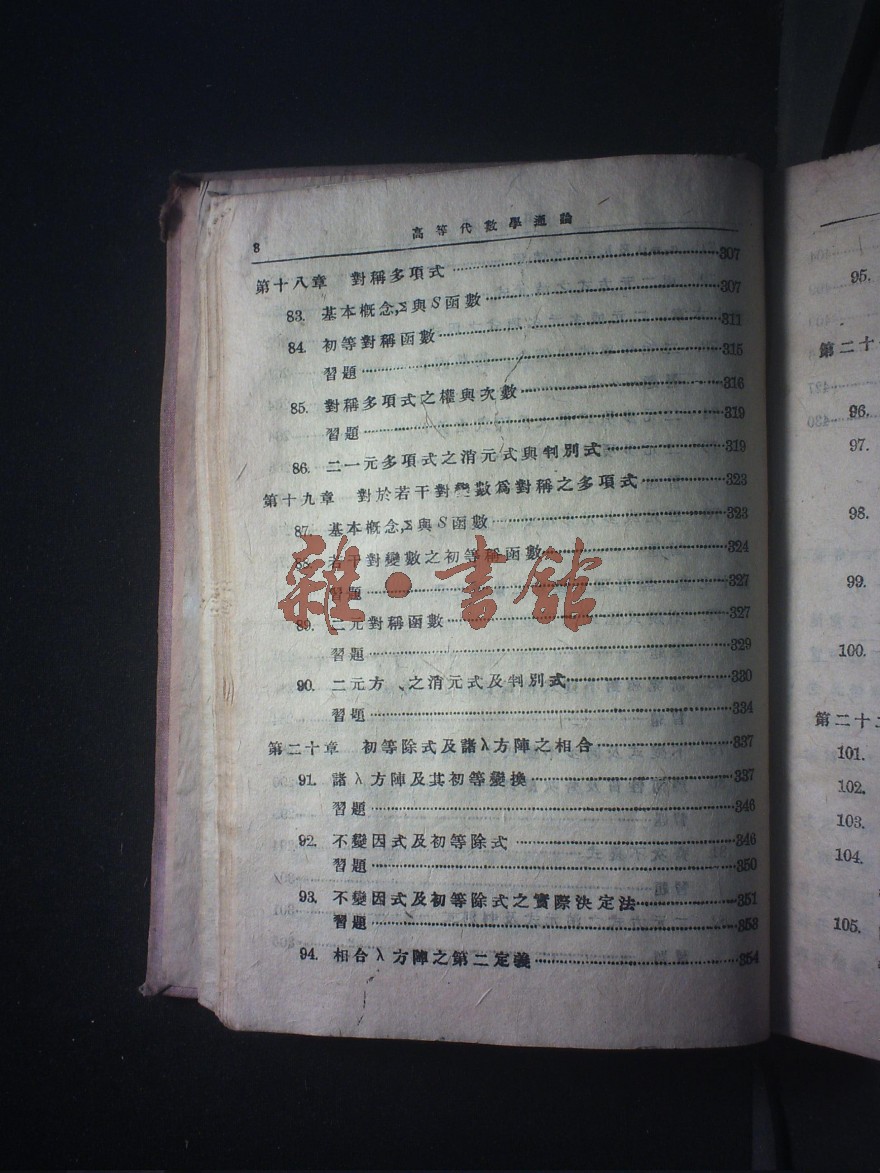 8
高等代數學通論
第十八章 對稱多項式 307
83. 基本概念,Σ與S函數 307
84. 初等對稱函數 311
習題 315
85. 對稱多項式之權與次數 316
習題 319
86. 二一元多項式之消元式與判別式 319
第十九章 對於若干對變數爲對稱之多項式 323
87. 基本概念,Σ與S函數 323
88. 若干對變數之初等稱函數 324
習題 327
89. 二元對稱函數 327
習題 329
90. 二元方 之消元式及判別式 330
習題 334
第二十章 初等除式及諸λ方陣之相合 337
91. 諸λ方陣及其初等變換 337
習題 346
92. 不變因式及初等除式 346
習題 350
93. 不變因式及初等除式之實際決定法 351
習題 353
94. 相合λ方陣之第二定義 354
雜·書館
95.
第二十
96.
97.
98.
99.
100.
第二十
101.
102.
103.
104.
105.